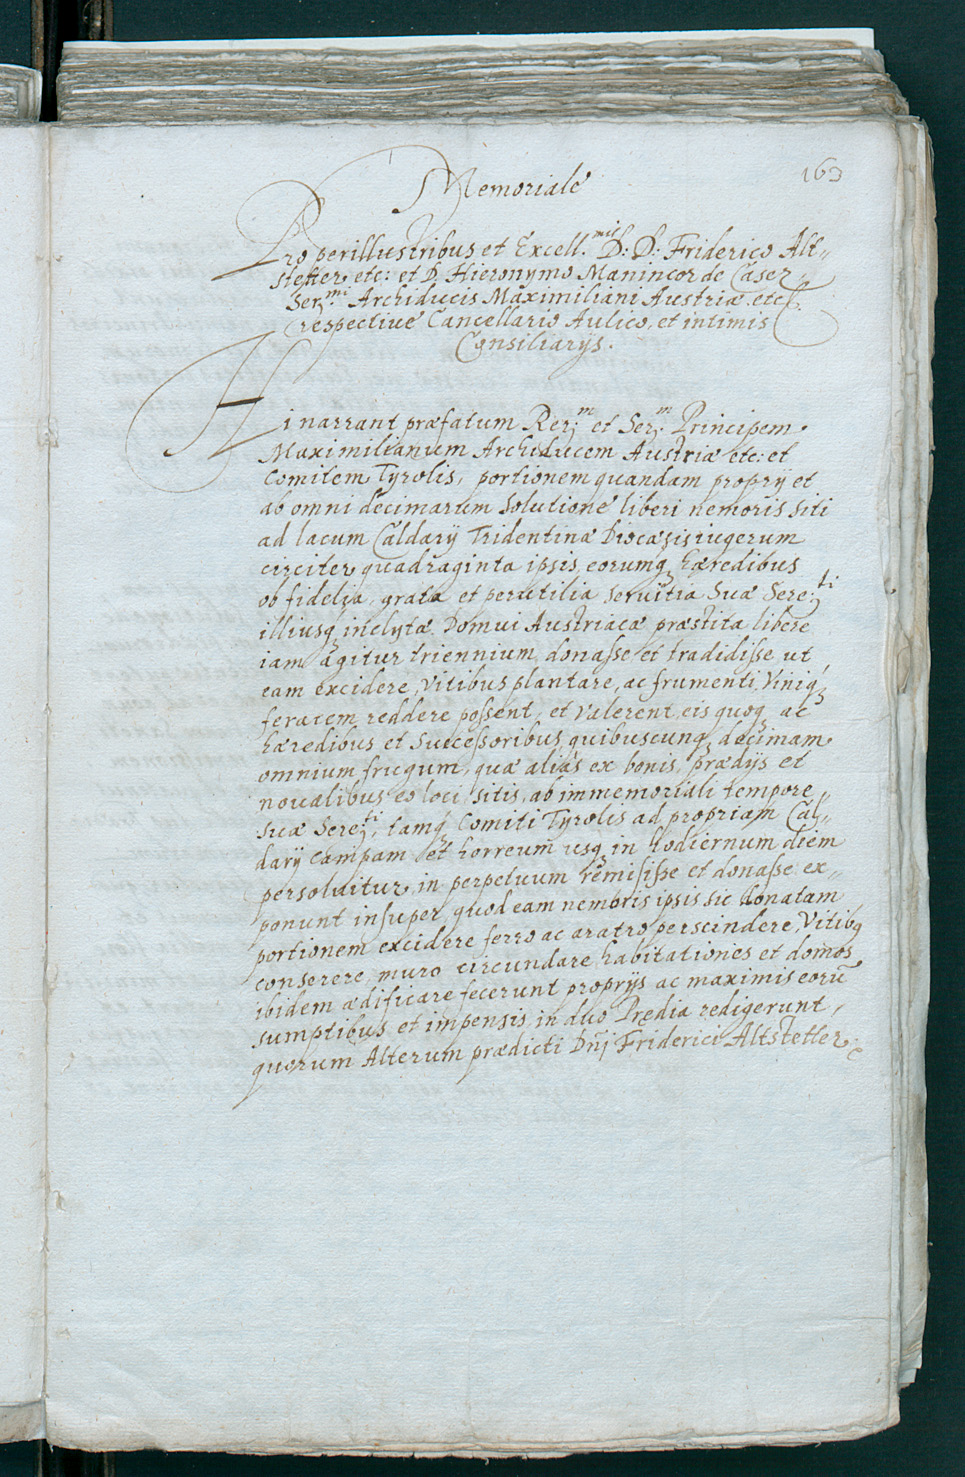 163
Memoriale
Pro perillustribus et Excell.mis D: D: Friderico Alt-
stetter etc: et D. Hieronymo Manincor de Caser,
Ser.mi Archiducis Maximiliani Austriæ etc.
respective Cancellario Aulico, et intimis
Consiliarijs.
Hi narrant præfatum Rev:m et Ser:m Principem
Maximilianum Archiducem Austriæ etc: et
Comitem Tyrolis, portionem quandam proprij et
ab omni decimarum solutione liberi nemoris siti
ad lacum Caldarij Tridentinæ Diocæsis iugerum
circiter quadraginta ipsis eorumq hæredibus
ob fidelia, grata et perutilia servitia Suæ Sere:ti
illiusq inclytæ Domui Austriacæ præstita libere
iam agitur triennium donasse et tradidisse ut
eam excidere, Vitibus plantare, ac frumenti, Viniq
feracem reddere possent, et valerent, eis quoq ac
hæredibus et Successoribus quibuscunq decimam
omnium frugum, quæ alias ex bonis, prædijs et
novalibus eo loci sitis, ab immemoriali tempore
suæ Sere:ti, tamq Comiti Tyrolis ad propriam Cal-
darij campam et horreum usq in hodiernum diem
persolvitur, in perpetuum remisisse et donasse ex-
ponunt insuper, quod eam nemoris ipsis sic donatam
portionem excidere ferro ac aratro perscindere, Vitibq
conserere, muro circundare habitationes et domos
ibidem ædificare fecerunt proprijs ac maximis eorũ
sumptibus et impensis in duo Prędia redigerunt,
quorum Alterum prædicti Dñj Friderici Altstetter